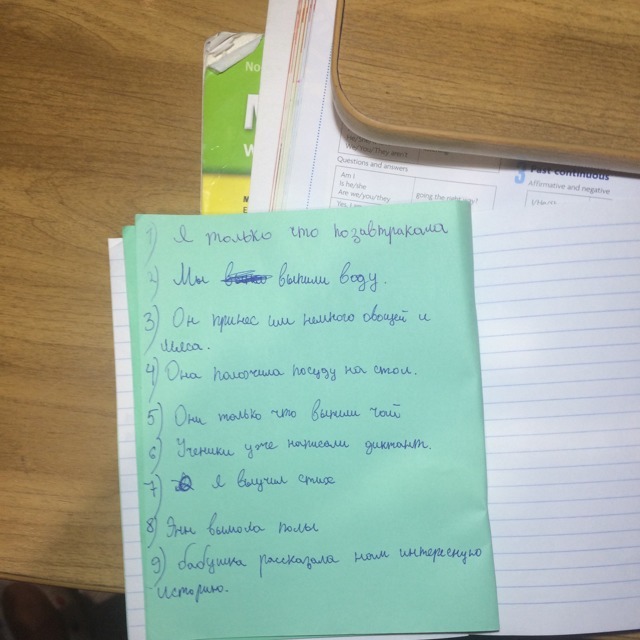 No
M
W
M
E
We/You/They aren't
Questions and answers
Am I
Is he/she
Are we/you/they
going the right way?
Yes, I am
3 Past continuous
Affirmative and negative
I/He/It
1) Я только что позавтракала
2) Мы выпили воду.
3) Он принес им немного овощей и
мяса.
4) Она положила посуду на стол.
5) Они только что выпили чай
6) Ученики уже написали диктант.
7) Я выучил стих
8) Энн вымола полы
9) бабушка рассказала нам интересную
историю.